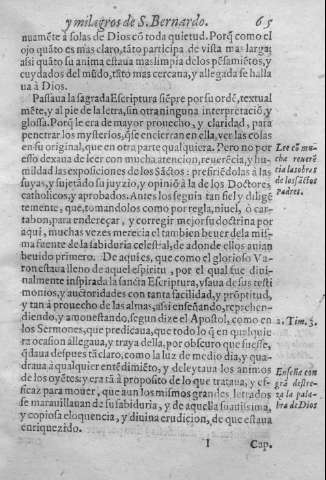 y milagros de S. Bernardo. 65
nuamẽte à solas de Dios cõ toda quietud. Porq̃ como el
ojo quãto es mas claro, tãto participa de vista mas larga:
assi quãto su anima estaua mas limpia delos pẽsamiẽtos, y
cuydados del mũdo, tãto mas cercana, y allegada se halla
ua à Dios.
Passaua la sagrada Escriptura siẽpre por su ordẽ, textual
mẽte, y al pie de la letra, sin otra ninguna interpretació, y
glossa. Porq̃ le era de mayor prouecho, y claridad, para
penetrar los mysterios, q̃ se encierran en ella, ver las cosas
en su original, que en otra parte qualquiera. Pero no por
esso dexaua de leer con mucha atencion, reuerẽcia, y hu-
mildad las exposiciones de los Sãctos: prefiriẽdolas à las
suyas, y sujetãdo su juyzio, y opinió à la de los Doctores
catholicos, y aprobados. Antes los seguia tan fiel y diligẽ
temente, que, tomandolos como por regla, niuel, ò car-
tabon, para endereçar, y corregir mejor su doctrina por
aqui, muchas vezes merecia el tambien beuer dela mis-
ma fuente de la sabiduria celestial, de adonde ellos auian
beuido primero. De aqui es, que como el glorioso Va-
ron estaua lleno de aquel espiritu, por el qual fue diui-
nalmente inspirada la sancta Escriptura, vsaua de sus testi
monios, y auctoridades con tanta facilidad, y prõptitud,
y tan à prouecho de las almas, assi enseñando, reprehen-
diendo, y amonestando, segun dize el Apostol, como en
los Sermones, que predicaua, que todo lo q̃ en qualquie
ra ocasion allegaua, y traya della, por obscuro que fuesse,
q̃daua despues tã claro, como la luz de medio dia, y qua-
draua à qualquier entẽdimiẽto, y deleytaua los animos
de los oyẽtes: y era tã à proposito de lo que trataua, y ef-
ficaz para mouer, que aun los mismos grandes letrados
se marauillauan de su sabiduria, y de aquella suauissima,
y copiosa eloquencia, y diuina erudicion, de que estaua
enriquezido.
I Cap.
Lee cõ mu-
cha reuerẽ
cia las obras
de los sãctos
Padres.
2. Tim. 3.
Enseña con
grã destre-
za la pala-
bra de Dios